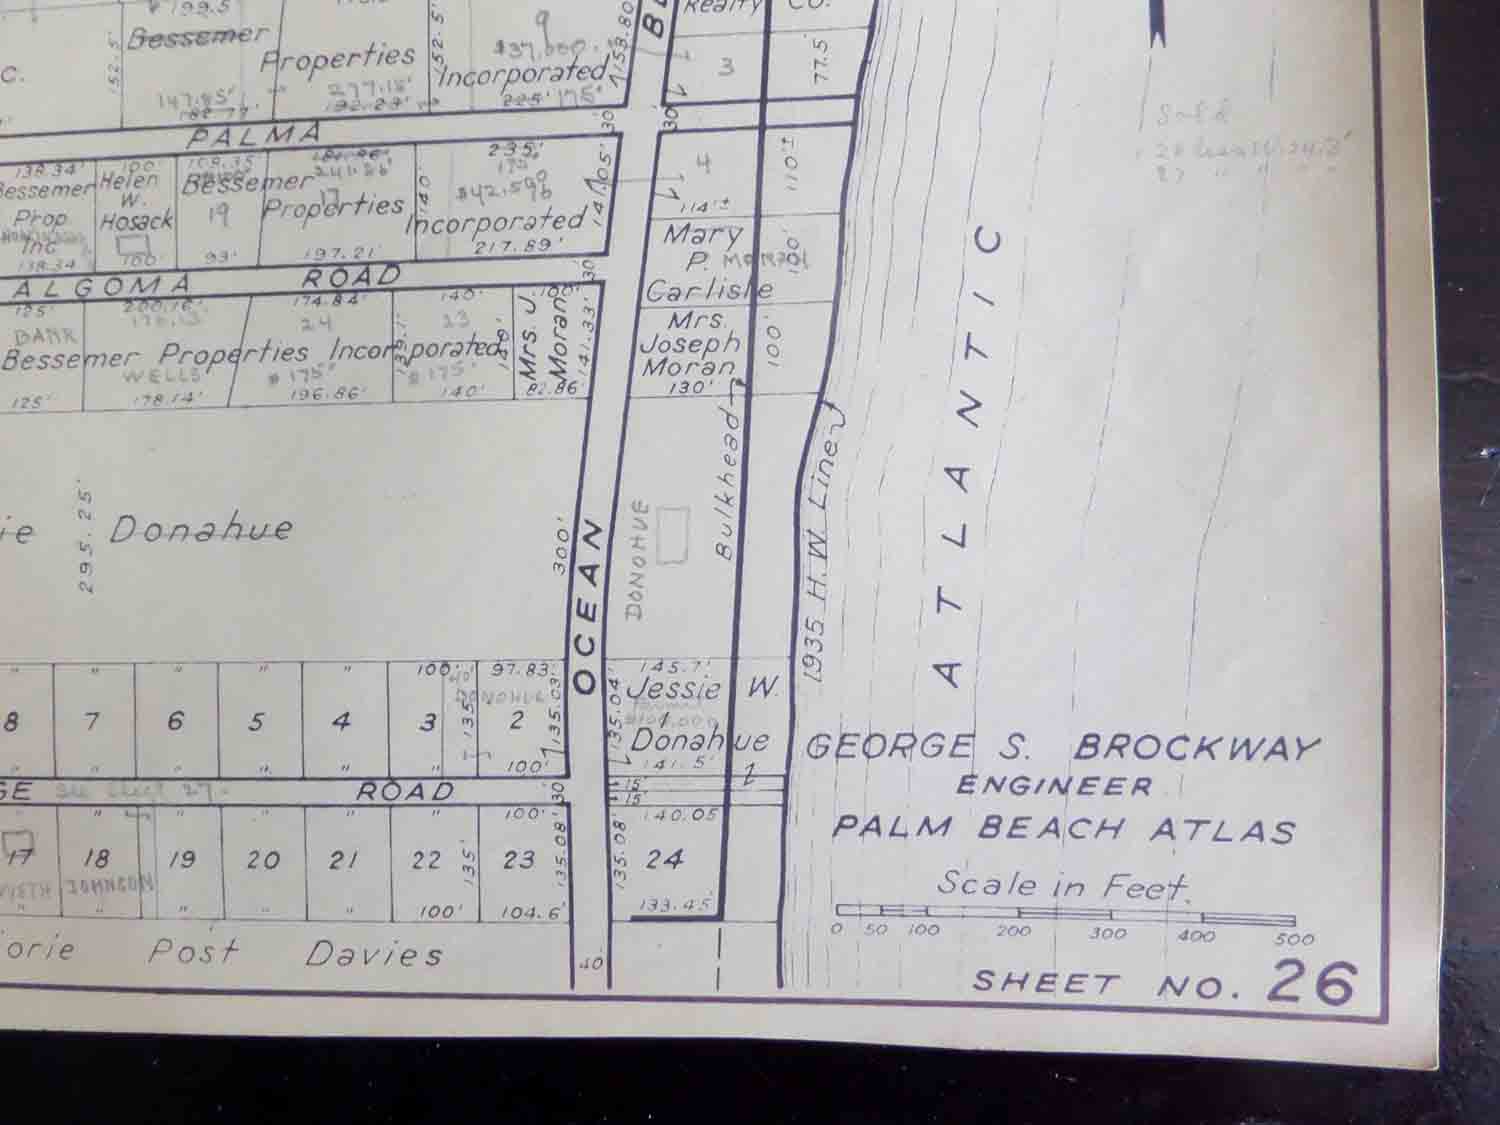 199.5
Bessemer
Properties
Incorporated
C.
152.5'
152.5'
9
$37,000.
147.85'
277.18'
225' 175'
153.80
BL
Realty CO.
3
77.5'
PALMA
30
30
138.34'
Bessemer
Prop
Inc
138.34
100'
Helen
W.
Hosack
100'
Bessemer
19
99'
241.86'
17
Properties
197.21'
140'
235'
175'
$42,500
Incorporated
217.89'
141.05'
4
110'±
114'±
Mary
P. MORAN
Carlisle
100'
ALGOMA ROAD
30
125'
BANK
200.16'
174.84'
24
140'
23
100'
Bessemer Properties Incorporated
WELLS
$175'
$175'
139.1'
140'
Mrs. J.
Moran
141.33'
125'
178.14'
196.86'
140'
82.86'
Mrs.
Joseph
Moran
130'
100'
Bulkhead
1935 H.W. Line
ATLANTIC
ie Donahue
295.25'
300'
OCEAN
DONOHUE
8 7 6 5 4 3 2
100'
97.83'
40'
DONOHUE
135'
135.03'
100'
145.7'
Jessie W.
1
$100,000
Donahue
135.04'
141.5'
2
GE See Sheet 27 ROAD
30
15'
15'
17 18 19 20 21 22 23
JOHNSON
100'
135'
135.08'
100' 104.6'
140.05
135.08'
24
133.45'
orie Post Davies
40
GEORGE S. BROCKWAY
ENGINEER
PALM BEACH ATLAS
Scale in Feet.
0 50 100 200 300 400 500
SHEET NO. 26